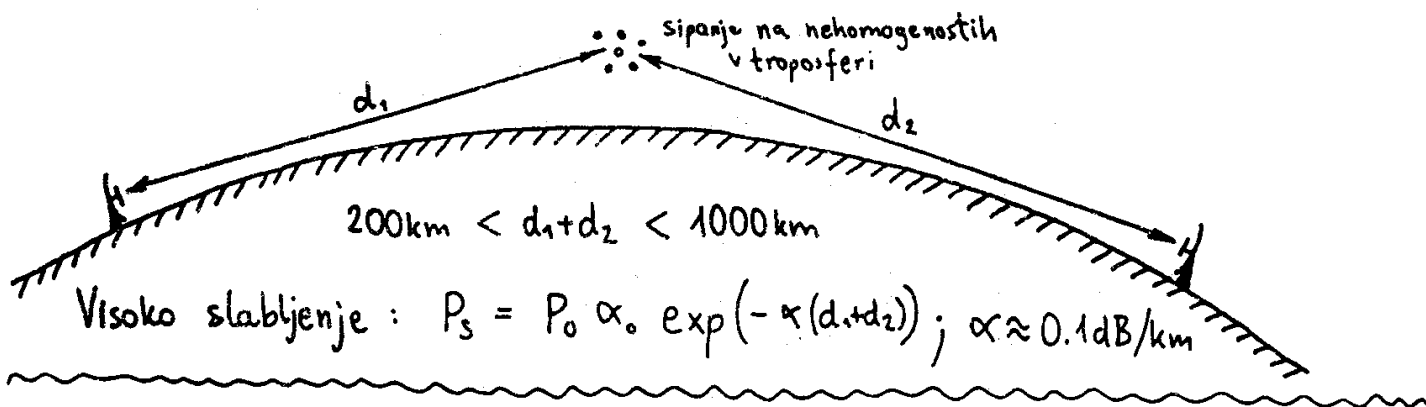 sipanje na nehomogenostih
v troposferi
d₁
d₂
200km < d₁+d₂ < 1000km
Visoko slabljenje : Pₛ = P₀ α₀ exp(-α(d₁+d₂)) ; α≈0.1dB/km